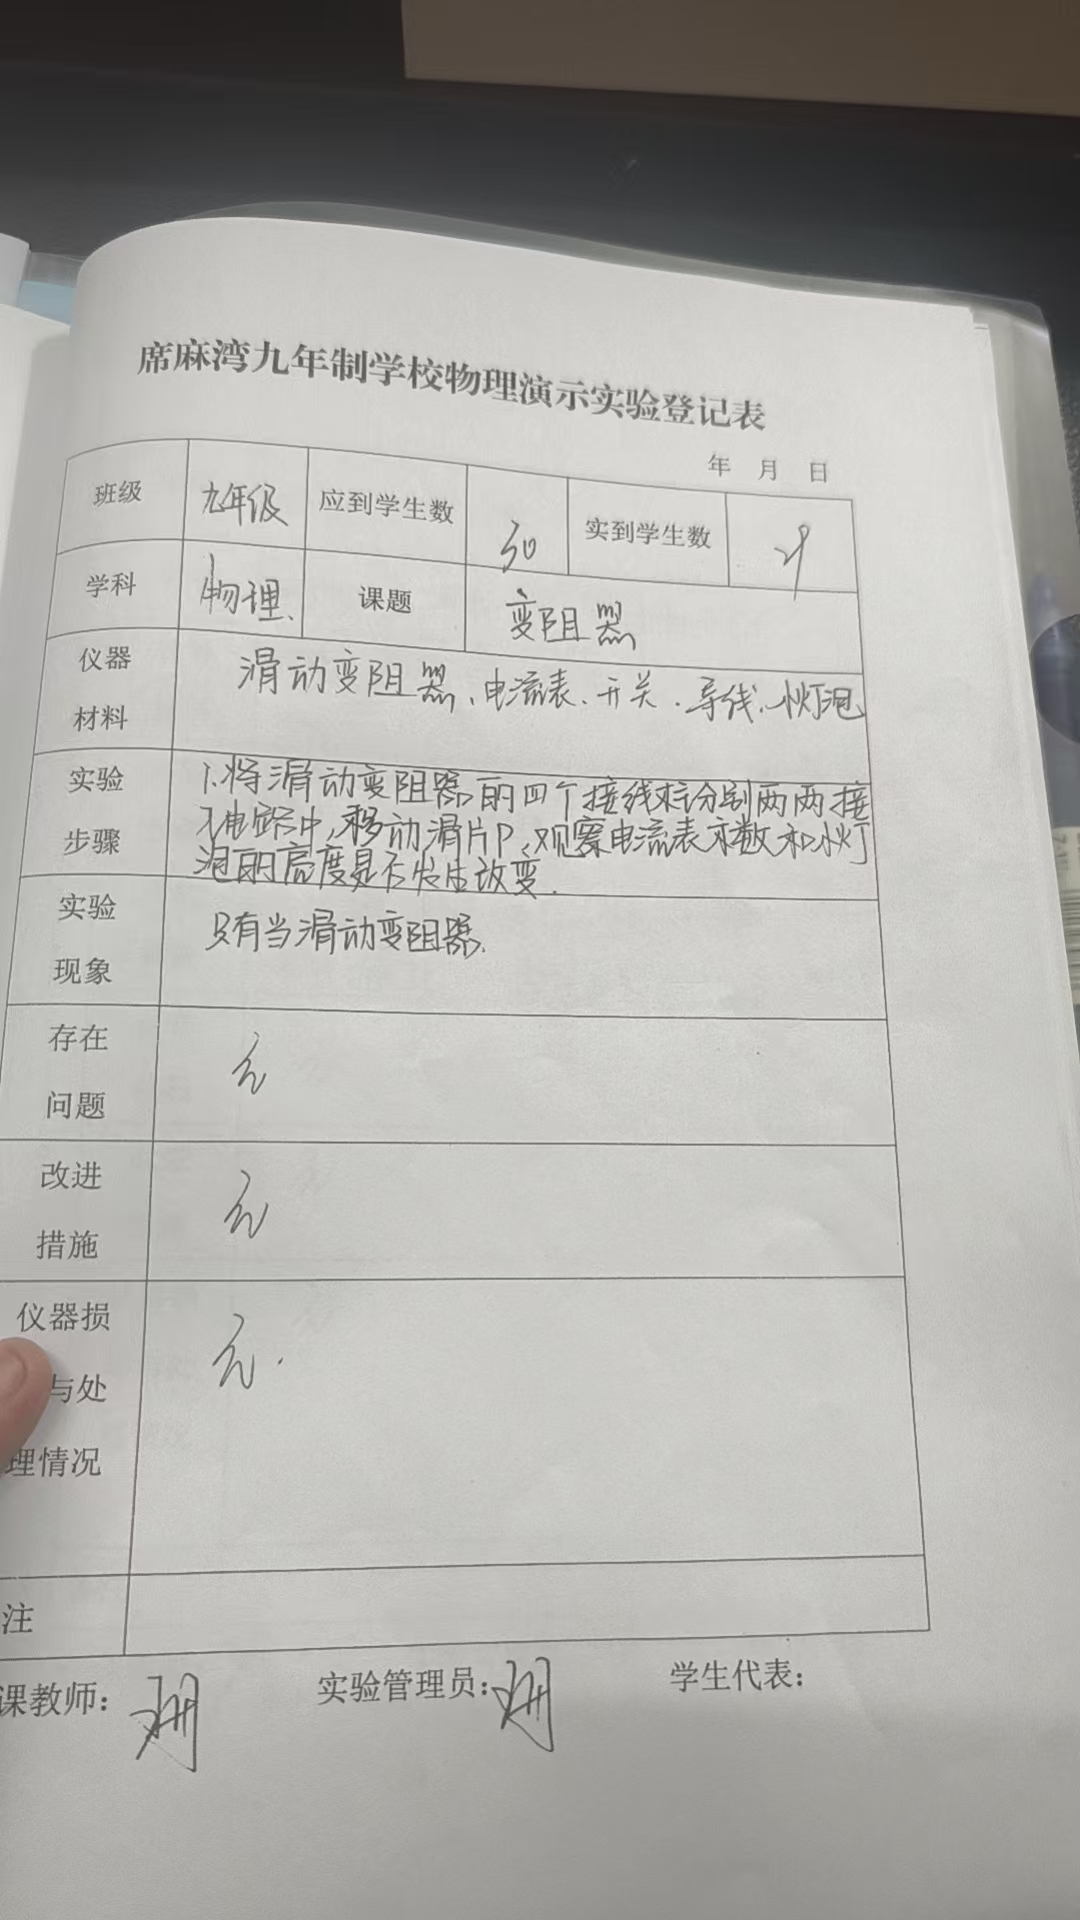 席麻湾九年制学校物理演示实验登记表
年 月 日
班级 九年级 应到学生数 30 实到学生数
学科 物理 课题 变阻器
仪器 滑动变阻器、电流表、开关、导线、小灯泡
材料
实验 1.将滑动变阻器的四个接线柱分别两两接
步骤 入电路中,移动滑片P,观察电流表示数和小灯
泡的亮度是否发生改变.
实验 只有当滑动变阻器.
现象
存在 无
问题
改进 无
措施
仪器损 无.
与处
理情况
注
课教师: 实验管理员: 学生代表: